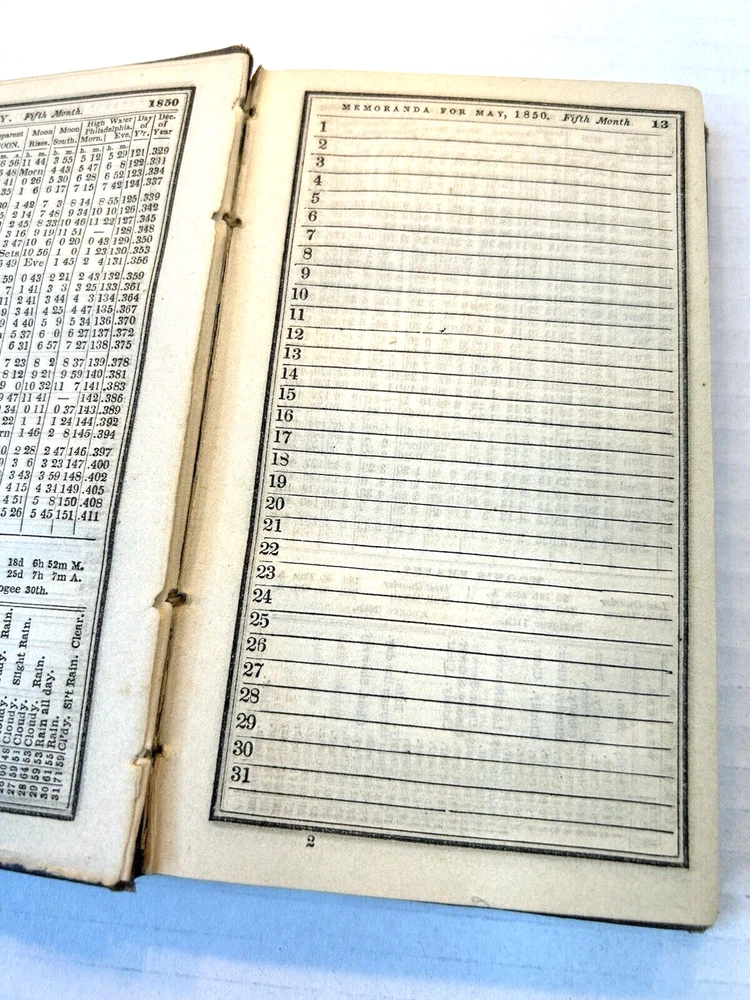 Y. Fifth Month. 1850
Moon Moon High Water Day Dec.
Philadelphia. of of
NOON. Rises. South. Morn. Eve. Y'r. Year
h. m. h. m. h. m. h. m.
6 56 11 44 3 55 5 12 5 29 121 .329
6 48 Morn 4 43 5 47 6 8 122 .331
41 0 26 5 30 6 28 6 52 123 .334
35 1 6 6 17 7 15 7 42 124 .337
1 42 7 3 8 14 8 55 125 .339
2 14 7 48 9 34 10 10 126 .342
2 45 8 33 10 46 11 22 127 .345
3 16 9 19 11 51 — 128 .348
3 47 10 6 0 20 0 43 129 .350
Sets 10 56 1 0 1 23 130 .353
6 49 Eve 1 45 2 4 131 .356
59 0 43 2 21 2 43 132 .359
7 1 41 3 3 3 25 133 .361
11 2 41 3 44 4 3 134 .364
9 3 41 4 25 4 47 135 .367
9 4 40 5 9 5 34 136 .370
5 37 6 0 6 27 137 .372
6 31 6 57 7 27 138 .375
7 23 8 2 8 37 139 .378
8 12 9 21 9 59 140 .381
9 0 10 32 11 7 141 .383
9 47 11 41 — 142 .386
34 0 11 0 37 143 .389
22 1 1 1 24 144 .392
rn 1 46 2 8 145 .394
0 2 28 2 47 146 .397
3 6 3 23 147 .400
3 43 3 59 148 .402
4 15 4 31 149 .405
4 51 5 8 150 .408
5 26 5 45 151 .411
18d 6h 52m M.
25d 7h 7m A.
ogee 30th.
Cloudy.
27 59 51 Cloudy. Slight Rain.
28 64 53 Cloudy.
29 59 53 Cloudy. Rain.
30 61 55 Rain all day.
31 71 59 Cl'dy. Sl't Rain. Clear.
MEMORANDA FOR MAY, 1850. Fifth Month. 13
1
2
3
4
5
6
7
8
9
10
11
12
13
14
15
16
17
18
19
20
21
22
23
24
25
26
27
28
29
30
31
2